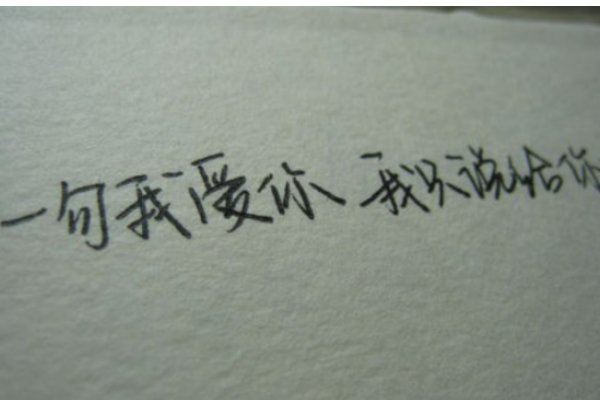 一句我爱你 我只说给你